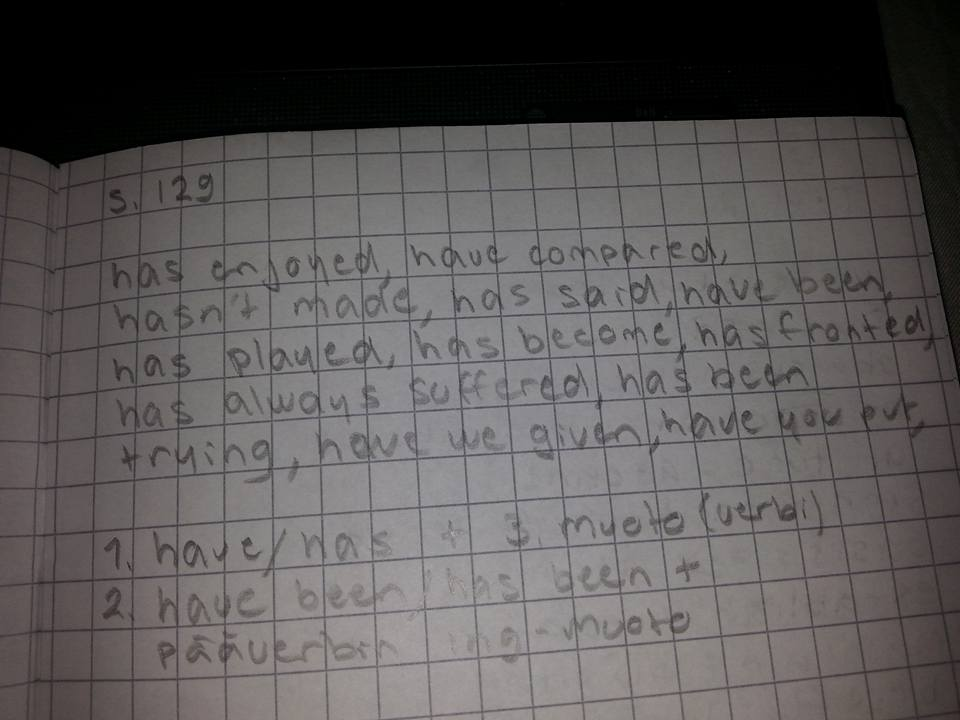 s. 129
has enjoyed, have compared,
hasn't made, has said, have been,
has played, has become, has fronted,
has always suffered, has been
trying, have we given, have you put,
1. have/has + 3. muoto (verbi)
2. have been/has been +
pääverbin ing-muoto